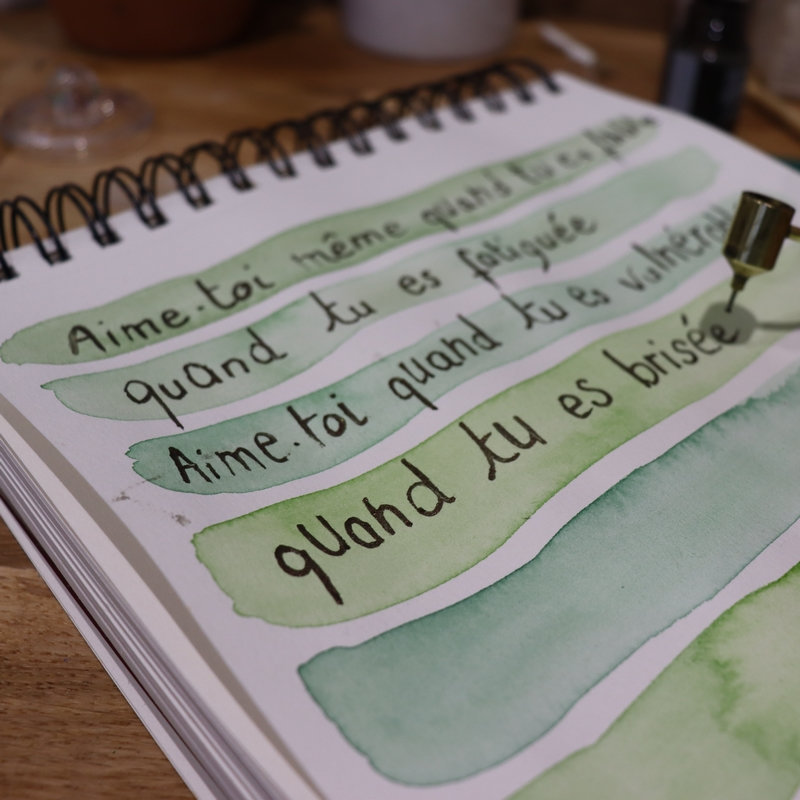 Aime-toi même quand tu es faible
quand tu es fatiguée
Aime-toi quand tu es vulnérable
quand tu es brisée